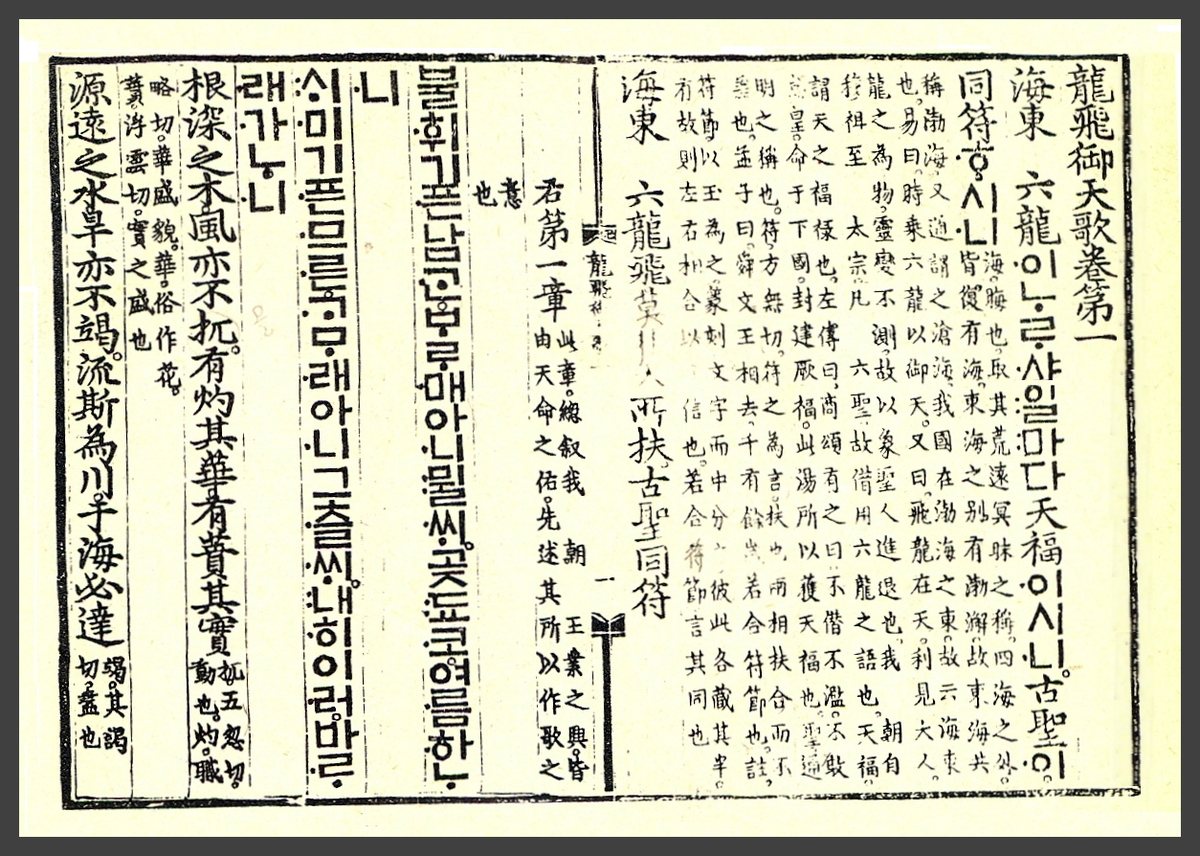 龍飛御天歌卷第一
海東 六龍이ᄂᆞᄅᆞ샤일마다天福이시니。古聖이
同符ᄒᆞ시니
海。晦也。取其荒遠冥昧之稱。四海之外。
皆復有海。東海之別有渤澥。故東海共
稱渤海。又通謂之滄海。我國在渤海之東。故云海東
也。易曰。時乘六龍以御天。又曰。飛龍在天。利見大人。
龍之為物。靈變不測。故以象聖人進退也。我 朝自
穆祖至 太宗。凡 六聖。故借用六龍之語也。天福。
謂天之福祿也。左傳曰。商頌有之曰。不僭不濫。不敢
怠皇。命于下國。封建厥福。此湯所以獲天福也。聖。通
明之稱也。符。方無切。符之為言。扶也。兩相扶合而不
差也。孟子曰。舜文王相去。千有餘歲。若合符節也。註。
符節以玉為之。篆刻文字而中分之。彼此各藏其半。
有故則左右相合以 信也。若合符節。言其同也
海東 六龍飛莫 所扶。古聖同符
龍飛
一
右第一章
此章。總叙我 朝 王業之興。皆
由天命之佑。先述其所以作歌之
意
也
불휘기픈남ᄀᆞᆫᄇᆞᄅᆞ매아니뮐ᄊᆡ。곶됴코。여름하ᄂᆞ
니
ᄉᆡ미기픈므른ᄀᆞᄆᆞ래아니그츨ᄊᆡ。내히이러。바ᄅᆞ
래가ᄂᆞ니
根深之木風亦不扤。有灼其華有蕡其實
扤。五忽切。
動也。灼。職
略切。華盛貌。華。俗作花。
蕡。浮雲切。實之盛也
源遠之水旱亦不竭。流斯為川。于海必達
竭。其謁
切。盡也